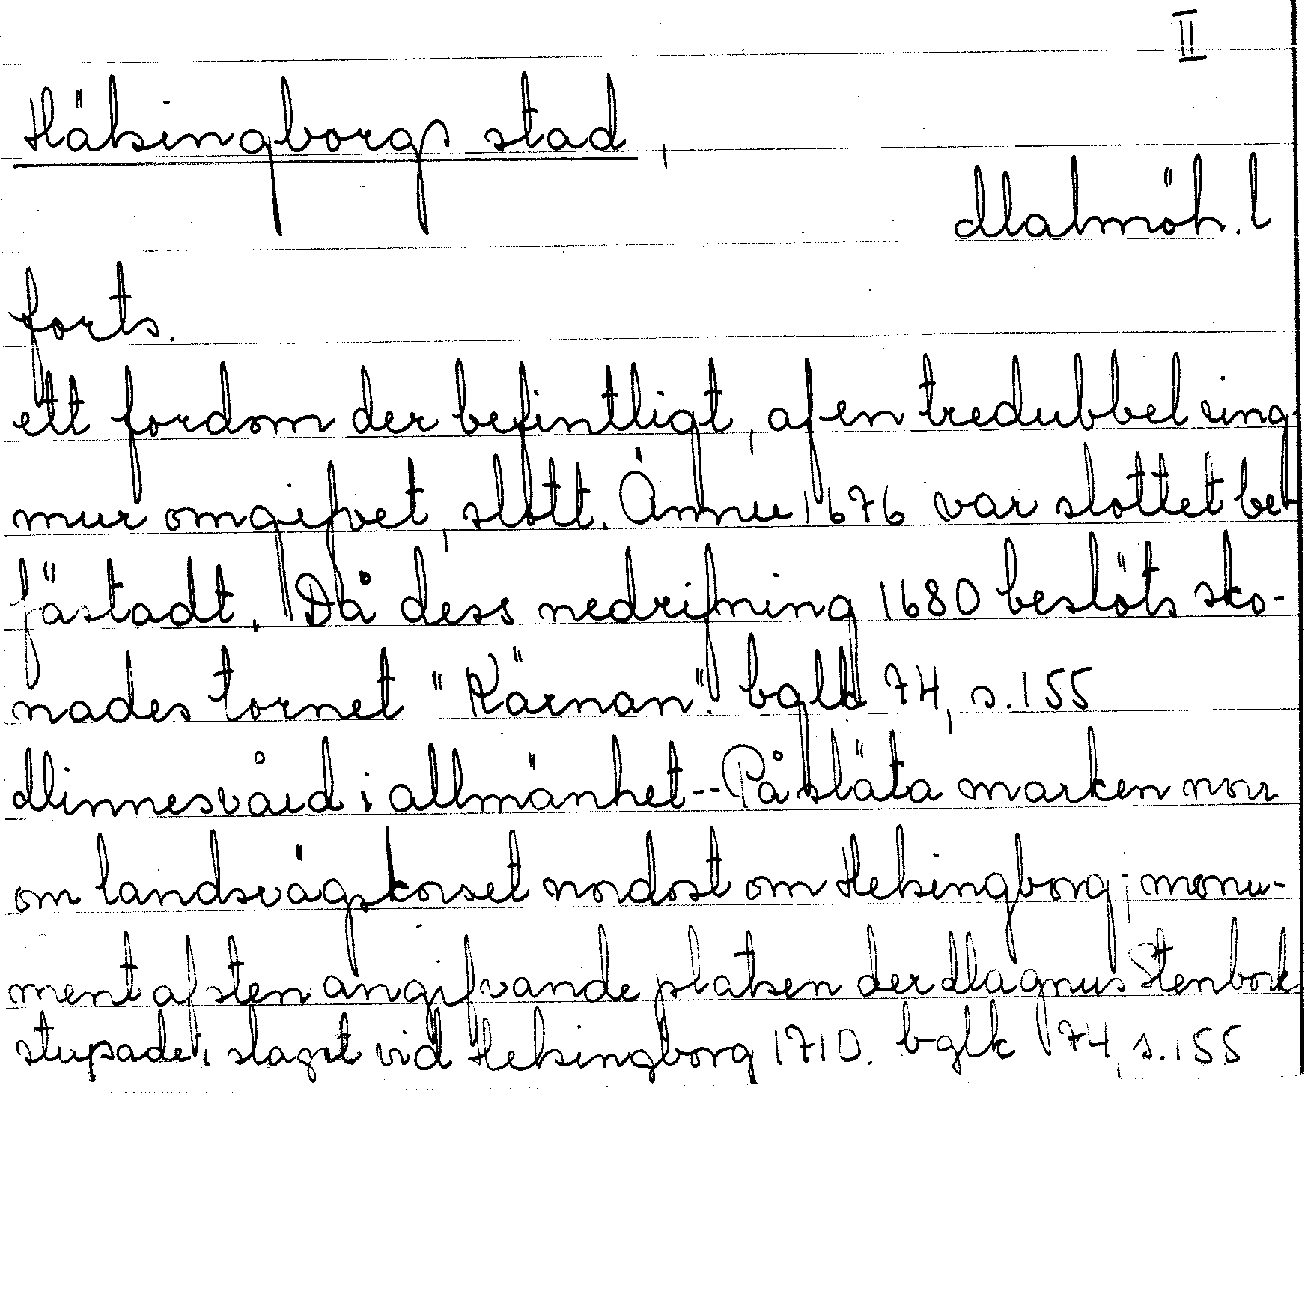 II
Hälsingborgs stad,
Malmöh. l
forts.
ett fordom der befintligt, af en tredubbel ring-
mur omgifvet, slott. Ännu 1676 var slottet be-
fästadt. Då dess nedrifning 1680 beslöts sko-
nades tornet "Kärnan". bglk 74, s. 155
Minnesvård i allmänhet -- På släta marken norr
om landsvägskorset nordost om Helsingborg; monu-
ment af sten angifvande platsen der Magnus Stenbock
stupade i slaget vid Helsingborg 1710. bglk 74, s. 155